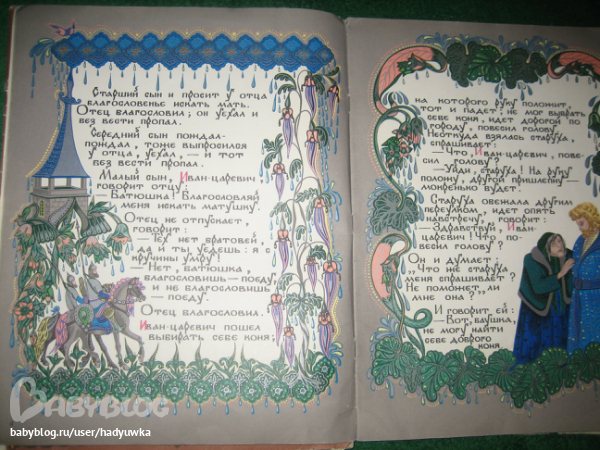 Старший сын и просит у отца
благословенье искать мать.
Отец благословил; он уехал и
без вести пропал.
Середний сын пождал-
пождал, тоже выпросился
у отца, уехал, — и тот
без вести пропал.
Малый сын, Иван-царевич
говорит отцу:
— Батюшка! Благословляй
меня искать матушку.
Отец не отпускает,
говорит:
— Тех нет братовей,
да и ты уедешь: я с
кручины умру!
— Нет, батюшка,
благословишь — поеду,
и не благословишь
— поеду.
Отец благословил.
Иван-царевич пошел
выбирать себе коня;
на которого руку положит,
тот и падет: не мог выбрать
себе коня, идет дорогой по
городу, повесил голову.
Неоткуда взялась старуха,
спрашивает:
— Что, Иван-царевич, пове-
сил голову?
— Уйди, старуха! На руку
положу, другой пришлепну —
мокренько будет.
Старуха обежала другим
переулком, идет опять
навстречу, говорит:
— Здравствуй, Иван-
царевич! Что по-
весил голову?
Он и думает:
"Что же старуха
меня спрашивает?
Не поможет ли
мне она?"
И говорит ей:
— Вот, баушка,
не могу найти
себе доброго
коня.
BABYBLOG
babyblog.ru/user/hadyuwka